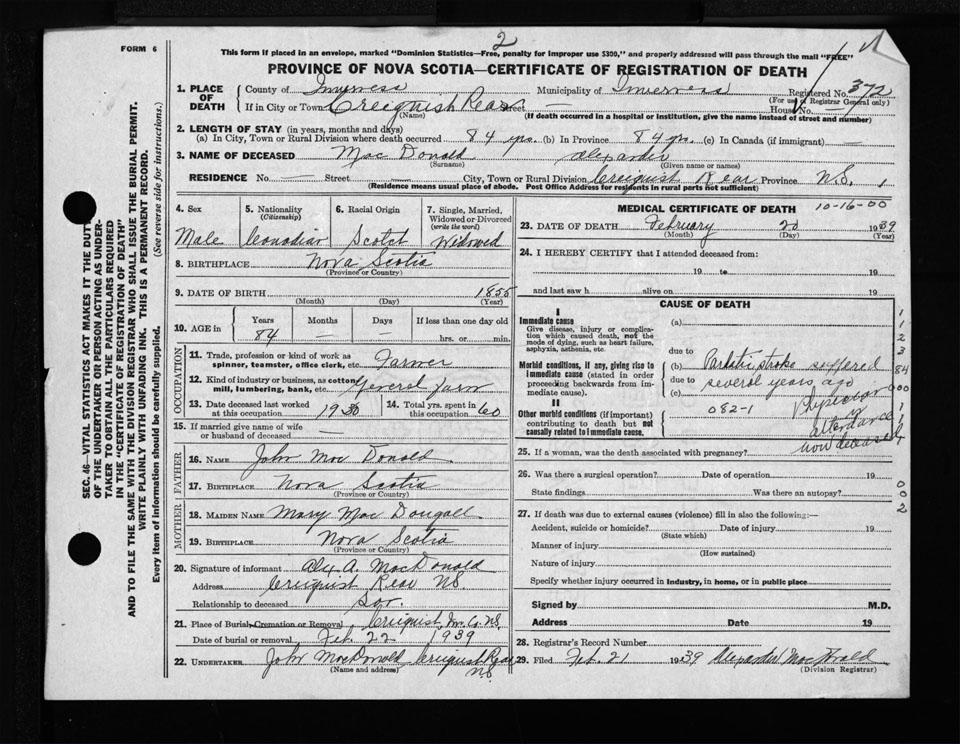 FORM 6
2
This form if placed in an envelope, marked "Dominion Statistics—Free, penalty for improper use $300," and properly addressed will pass through the mail "FREE"
PROVINCE OF NOVA SCOTIA—CERTIFICATE OF REGISTRATION OF DEATH
1. PLACE OF DEATH
County of Inverness Municipality of Inverness Registered No. 372
(For use of Registrar General only)
If in City or Town Creiguish Rear Street — House No.
(Name) (If death occurred in a hospital or institution, give the name instead of street and number)
2. LENGTH OF STAY (in years, months and days)
(a) In City, Town or Rural Division where death occurred 84 yrs. (b) In Province 84 yrs. (c) In Canada (if immigrant) —
3. NAME OF DECEASED Mac Donald Alexander
(Surname) (Given name or names)
RESIDENCE No. — Street — City, Town or Rural Division Creiguist Rear Province N.S. 1
(Residence means usual place of abode. Post Office Address for residents in rural parts not sufficient)
4. Sex 5. Nationality (Citizenship) 6. Racial Origin 7. Single, Married, Widowed or Divorced (write the word)
Male Canadian Scotch Widowed
8. BIRTHPLACE Nova Scotia
(Province or Country)
9. DATE OF BIRTH 1855
(Month) (Day) (Year)
10. AGE in Years Months Days If less than one day old
84 — — hrs. or min.
OCCUPATION
11. Trade, profession or kind of work as spinner, teamster, office clerk, etc. Farmer
12. Kind of industry or business, as cotton mill, lumbering, bank, etc. General Farm
13. Date deceased last worked at this occupation 1930 14. Total yrs. spent in this occupation 60
15. If married give name of wife or husband of deceased —
FATHER
16. NAME John Mac Donald
17. BIRTHPLACE Nova Scotia
(Province or Country)
MOTHER
18. MAIDEN NAME Mary Mac Dougall
19. BIRTHPLACE Nova Scotia
(Province or Country)
20. Signature of informant Alex A. MacDonald
Address Creiguist Rear N.S.
Relationship to deceased Son.
21. Place of Burial, Cremation or Removal Creiguist, Inv. Co. N.S.
Date of burial or removal Feb. 22 1939
22. UNDERTAKER John MacDonald Creiguist Rear N.S.
(Name and address)
MEDICAL CERTIFICATE OF DEATH 10-16-00
23. DATE OF DEATH February 20 1939
(Month) (Day) (Year)
24. I HEREBY CERTIFY that I attended deceased from:
19 to 19
and last saw h alive on 19
CAUSE OF DEATH
I
Immediate cause
Give disease, injury or complication which caused death, not the mode of dying, such as heart failure, asphyxia, asthenia, etc.
(a)
due to
Morbid conditions, if any, giving rise to immediate cause (stated in order proceeding backwards from immediate cause).
(b) Paralytic stroke suffered
due to several years ago
(c)
II
Other morbid conditions (if important) contributing to death but not causally related to immediate cause.
082-1 Physician in attendance now deceased
1
1
2
3
84
000
1
1
25. If a woman, was the death associated with pregnancy?
26. Was there a surgical operation? Date of operation 19
State findings Was there an autopsy?
0
0
2
27. If death was due to external causes (violence) fill in also the following:—
Accident, suicide or homicide? Date of injury 19
(State which)
Manner of injury
(How sustained)
Nature of injury
Specify whether injury occurred in industry, in home, or in public place
Signed by M.D.
Address Date 19
28. Registrar's Record Number
29. Filed Feb. 21 1939 Alexander MacDonald
(Division Registrar)
SEC. 46—VITAL STATISTICS ACT MAKES IT THE DUTY
OF THE UNDERTAKER OR PERSON ACTING AS UNDER-
TAKER TO OBTAIN ALL THE PARTICULARS REQUIRED
IN THE "CERTIFICATE OF REGISTRATION OF DEATH"
AND TO FILE THE SAME WITH THE DIVISION REGISTRAR WHO SHALL ISSUE THE BURIAL PERMIT.
WRITE PLAINLY WITH UNFADING INK. THIS IS A PERMANENT RECORD.
Every item of information should be carefully supplied. (See reverse side for instructions.)